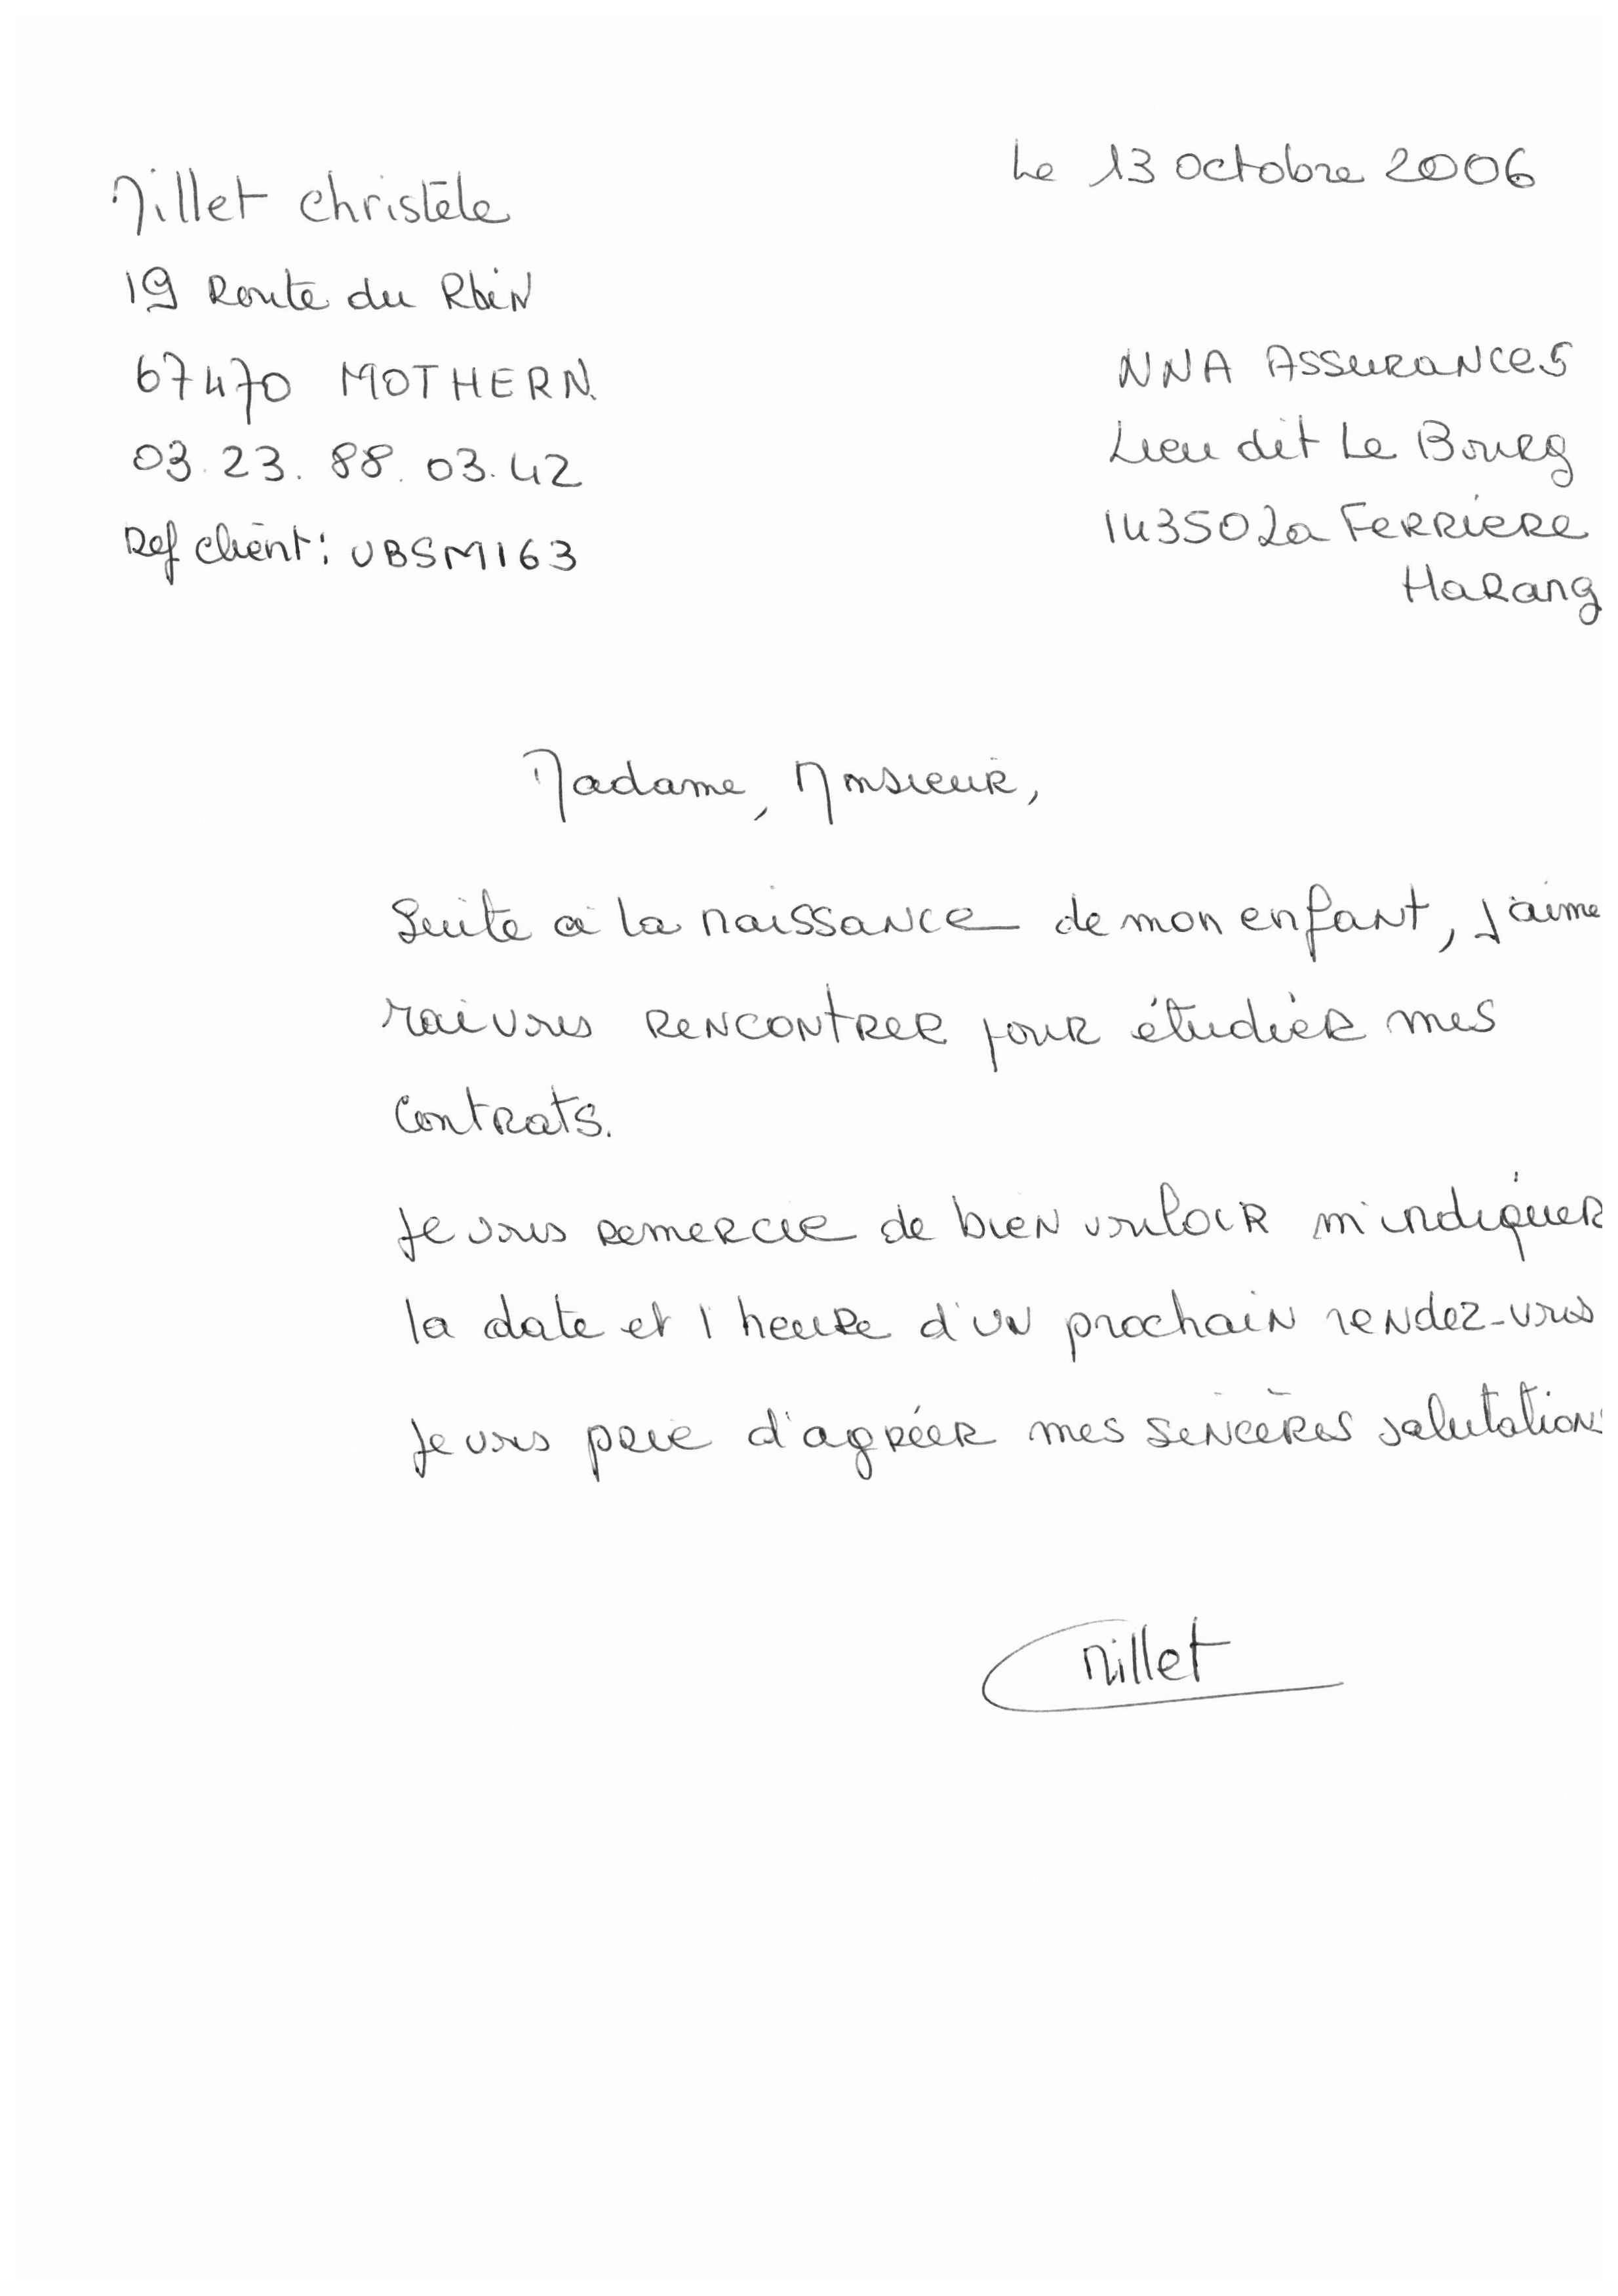 Le 13 octobre 2006
Millet Christèle
19 Route du Rhin
67470 MOTHERN
03.23.88.03.42
Ref client : UBSM163
NNA Assurances
Lieu dit Le Bourg
14350 La Ferriere
Harang
Madame, Monsieur,
Suite à la naissance de mon enfant, j'aime
rai vous rencontrer pour étudier mes
contrats.
Je vous remercie de bien vouloir m'indiquer
la date et l'heure d'un prochain rendez-vous
Je vous prie d'agréer mes sincères salutations
Millet